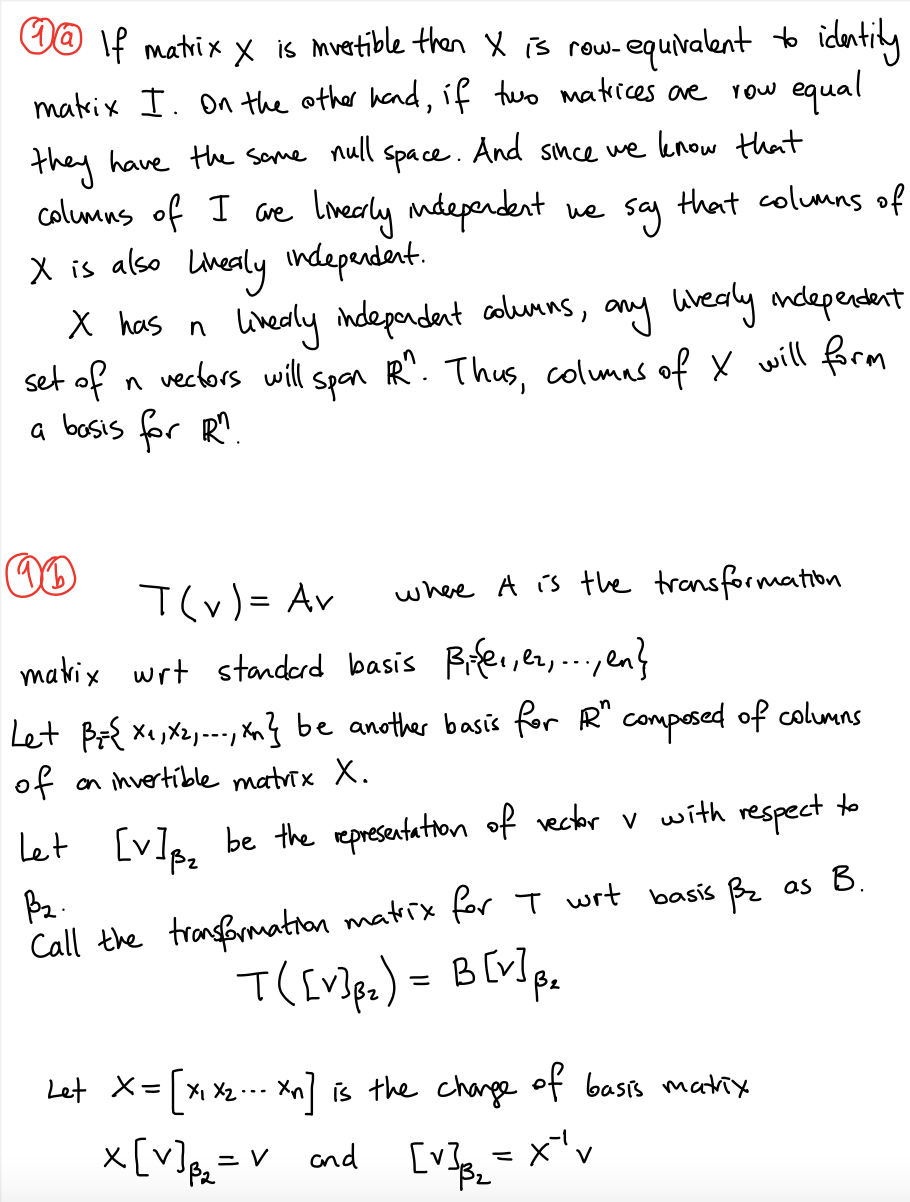 1a If matrix X is invertible then X is row-equivalent to identity
matrix I. On the other hand, if two matrices are row equal
they have the same null space. And since we know that
columns of I are linearly independent we say that columns of
X is also linearly independent.
X has n linearly independent columns, any linearly independent
set of n vectors will span ℝⁿ. Thus, columns of X will form
a basis for ℝⁿ.
1b T(v) = Av where A is the transformation
matrix wrt standard basis β₁={e₁,e₂,...,en}
Let β₂={x₁,x₂,...,xn} be another basis for ℝⁿ composed of columns
of an invertible matrix X.
Let [v]β₂ be the representation of vector v with respect to
β₂.
Call the transformation matrix for T wrt basis β₂ as B.
T([v]β₂) = B[v]β₂
Let X = [x₁ x₂ ... xn] is the change of basis matrix
X[v]β₂ = v and [v]β₂ = X⁻¹v